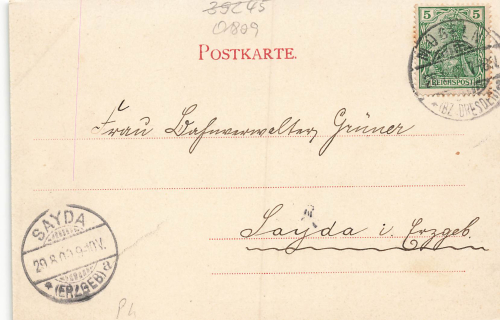 39245
0809
POSTKARTE.
5 5
REICHSPOST
(BZ. DRESDEN)
Frau Bahnverwalter Grüner
Sayda i. Erzgeb.
SAYDA
29.8.00.9-10V.
*(ERZGEB) a